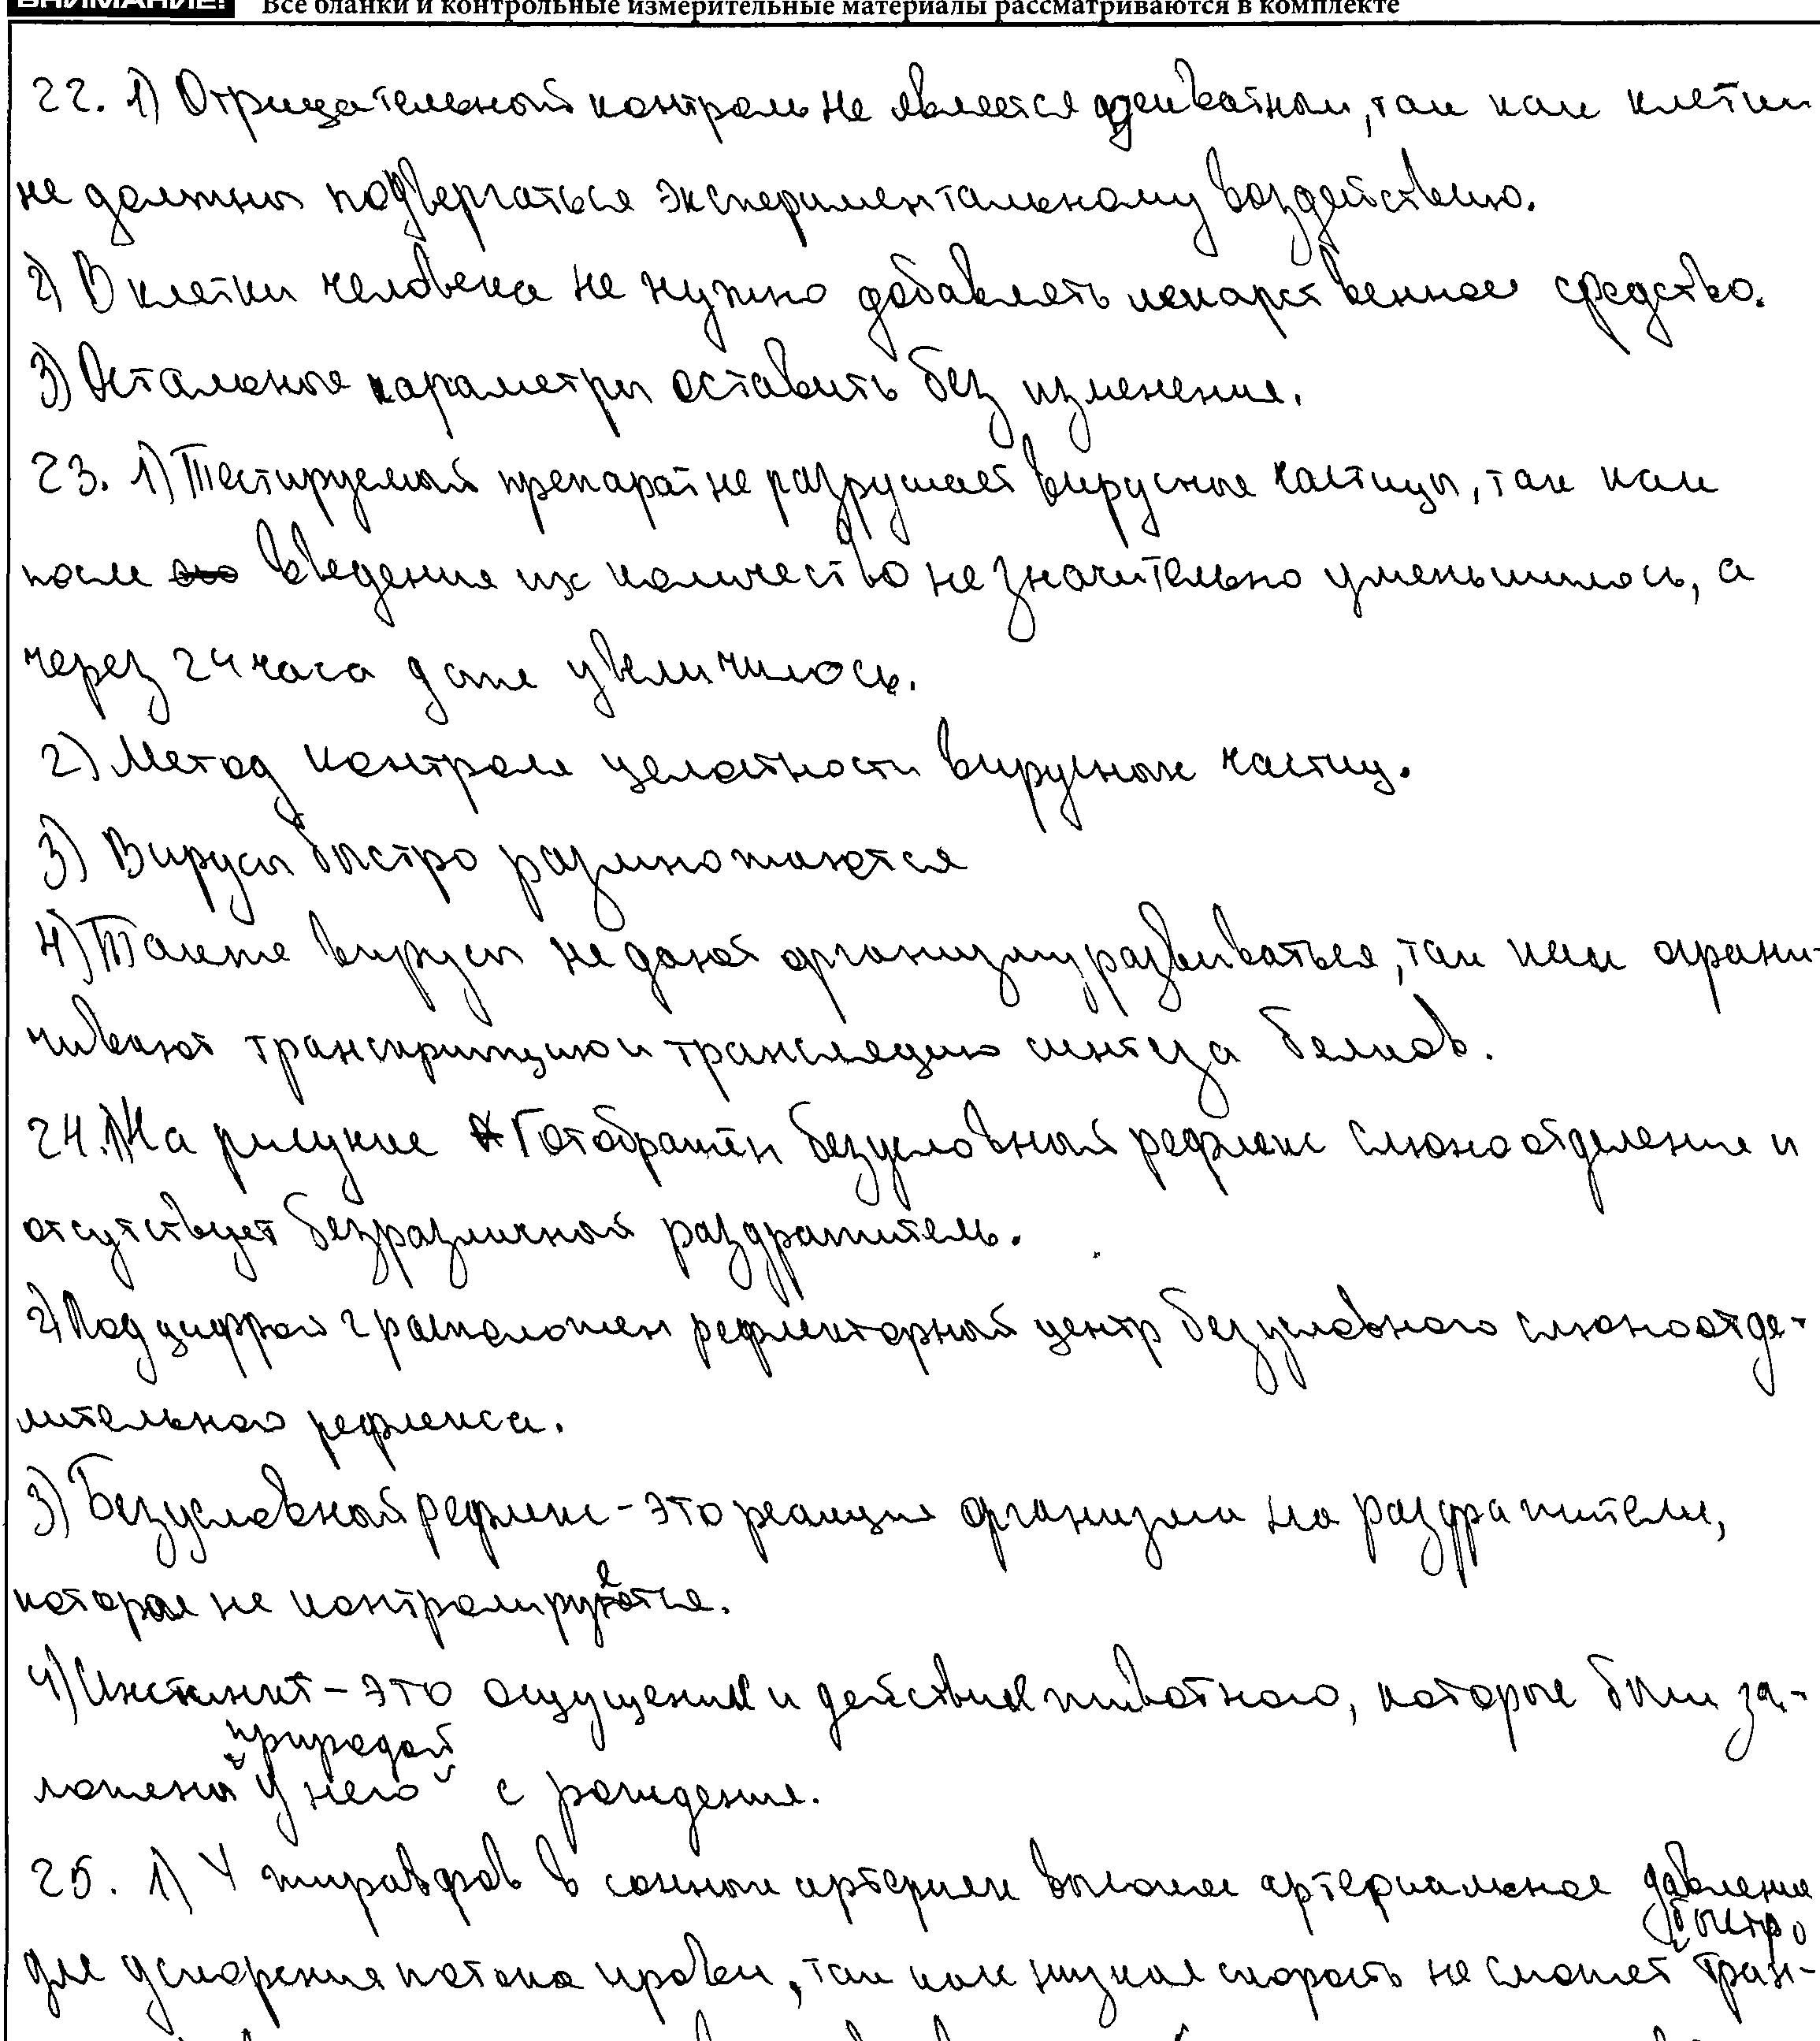 ВНИМАНИЕ! Все бланки и контрольные измерительные материалы рассматриваются в комплекте
22. 1) Отрицательный контроль не является адекватным, так как клетки
не должны подвергаться экспериментальному воздействию.
2) В клетки человека не нужно добавлять лекарственное средство.
3) Остальные параметры оставить без изменения.
23. 1) Тестируемый препарат не разрушает вирусные частицы, так как
после введения их количество не значительно уменьшилось, а
через 24 часа даже увеличилось.
2) Метод контроля целостности вирусных частиц.
3) Вирусы быстро размножаются
4) Также вирусы не дают организму развиваться, так как ограни-
чивают транскрипцию и трансляцию синтеза белков.
24. 1) На рисунке Г отображён безусловный рефлекс слюноотделения и
отсутствует безразличный раздражитель.
2) Под цифрой 2 расположен рефлекторный центр безусловного слюноотде-
лительного рефлекса.
3) Безусловный рефлекс - это реакция организма на раздражители,
которая не контролируется.
4) Инстинкт - это ощущения и действия животного, которые были за-
ложены природой у него с рождения.
25. 1) У жирафов в сонных артериях высокое артериальное давление
для ускорения потока крови, так как низкая скорость не сможет быстро тран-